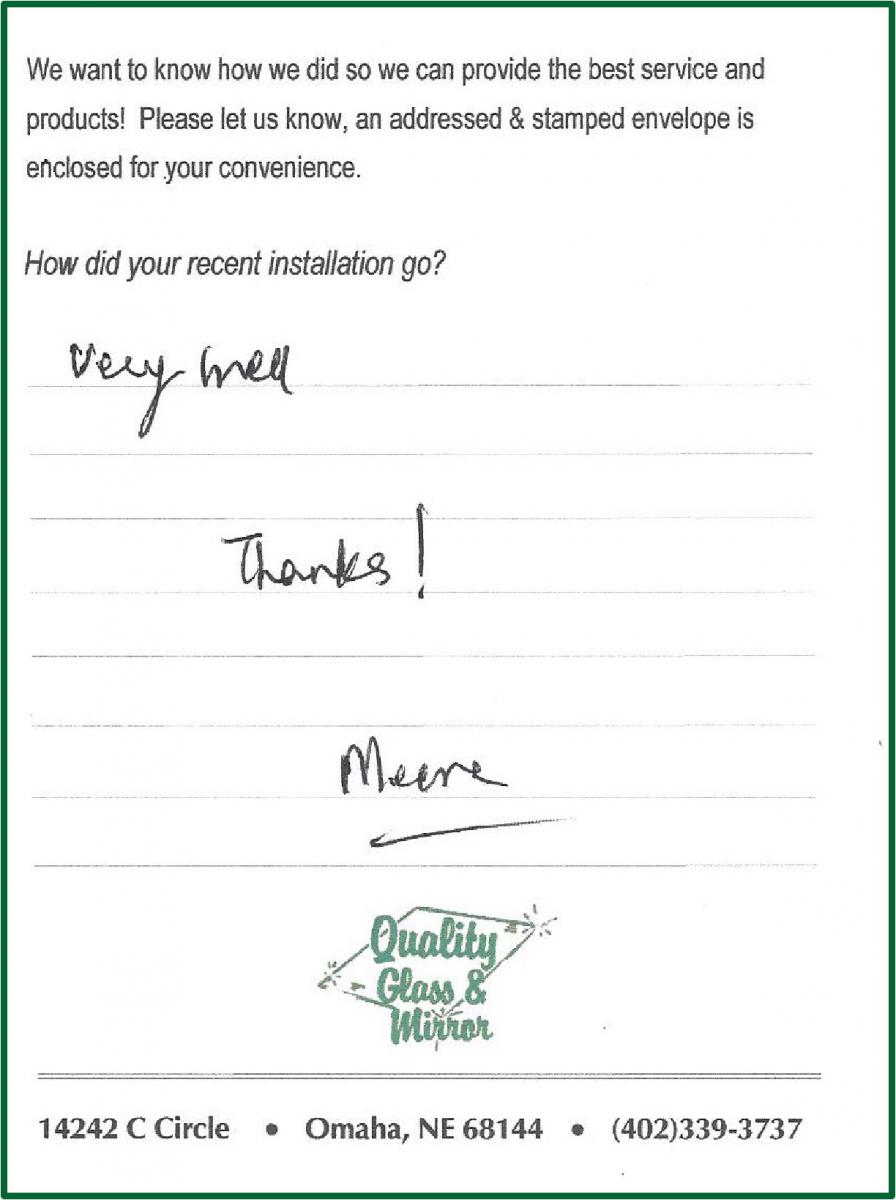 We want to know how we did so we can provide the best service and
products! Please let us know, an addressed & stamped envelope is
enclosed for your convenience.
How did your recent installation go?
Very well
Thanks!
Quality
Glass &
Mirror
14242 C Circle • Omaha, NE 68144 • (402)339-3737